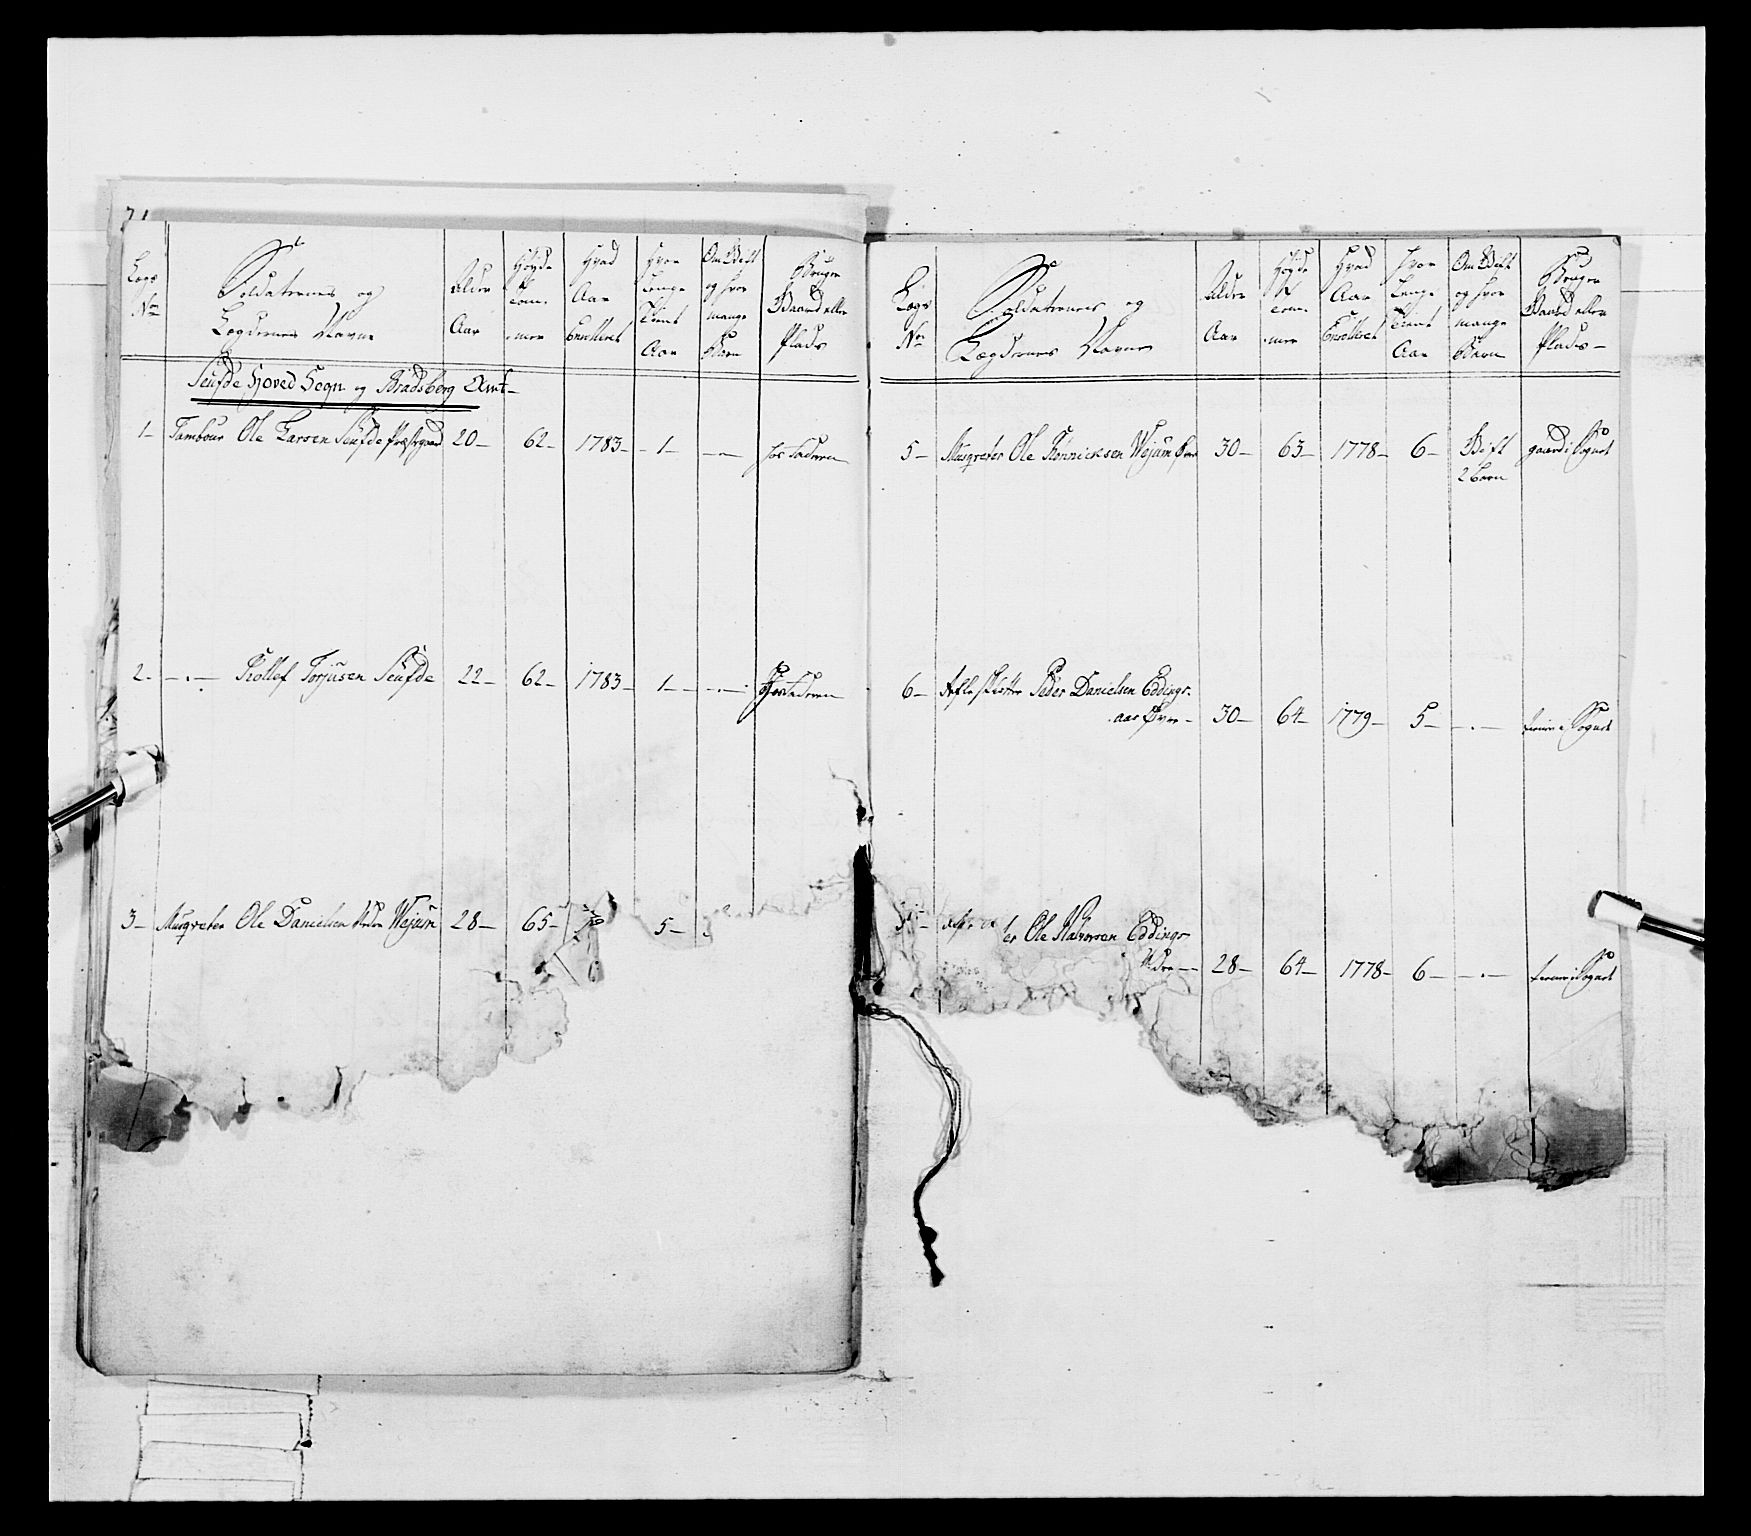 Legs No
Soldaternes og Lægdernes Navne
Alder Aar
Høyde
Hvad Aar Enrolleret
Hvor Lenge Tient Aar
Om Gift og hvor mange Børn
Bruger Gaard eller Plads
Seufde Hoved Sogn og Bradsberg Amt
1 - Tambour Ole Larsen Seufde Præstgaard 20 - 62 - 1783 - 1 - hos Faderen
2 - Rollef Torjusen Seufde 22 - 62 - 1783 - 1 - hos Faderen
3 - Musqveter Ole Danielsen Nedre Wejum 28 - 65 - 5 -
Legs No
Soldaternes og Lægdernes Navne
Alder Aar
Høyde
Hvad Aar Enrolleret
Hvor Lenge Tient Aar
Om Gift og hvor mange Børn
Bruger Gaard eller Plads
5 - Musqveter Ole Tønnicksen Wejum Øvre 30 - 63 - 1778 - 6 - Gift gaard i Sognet
2 Børn
6 - Peder Danielsen Eddings-
aas Øvre - 30 - 64 - 1779 - 5 - tiener i Sognet
Ole Halvorsen Eddings-
Nedre - 28 - 64 - 1778 - 6 - tiener i Sognet